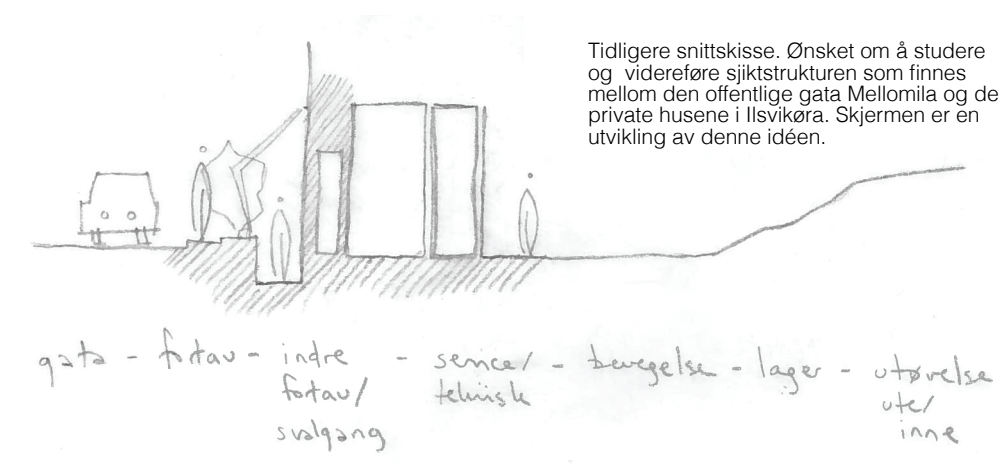 Tidligere snittskisse. Ønsket om å studere
og videreføre sjiktstrukturen som finnes
mellom den offentlige gata Mellomila og de
private husene i Ilsvikøra. Skjermen er en
utvikling av denne idéen.
gata - fortau - indre - service/ - bevegelse - lager - utøvelse
fortau/ teknisk ute/
svalgang inne